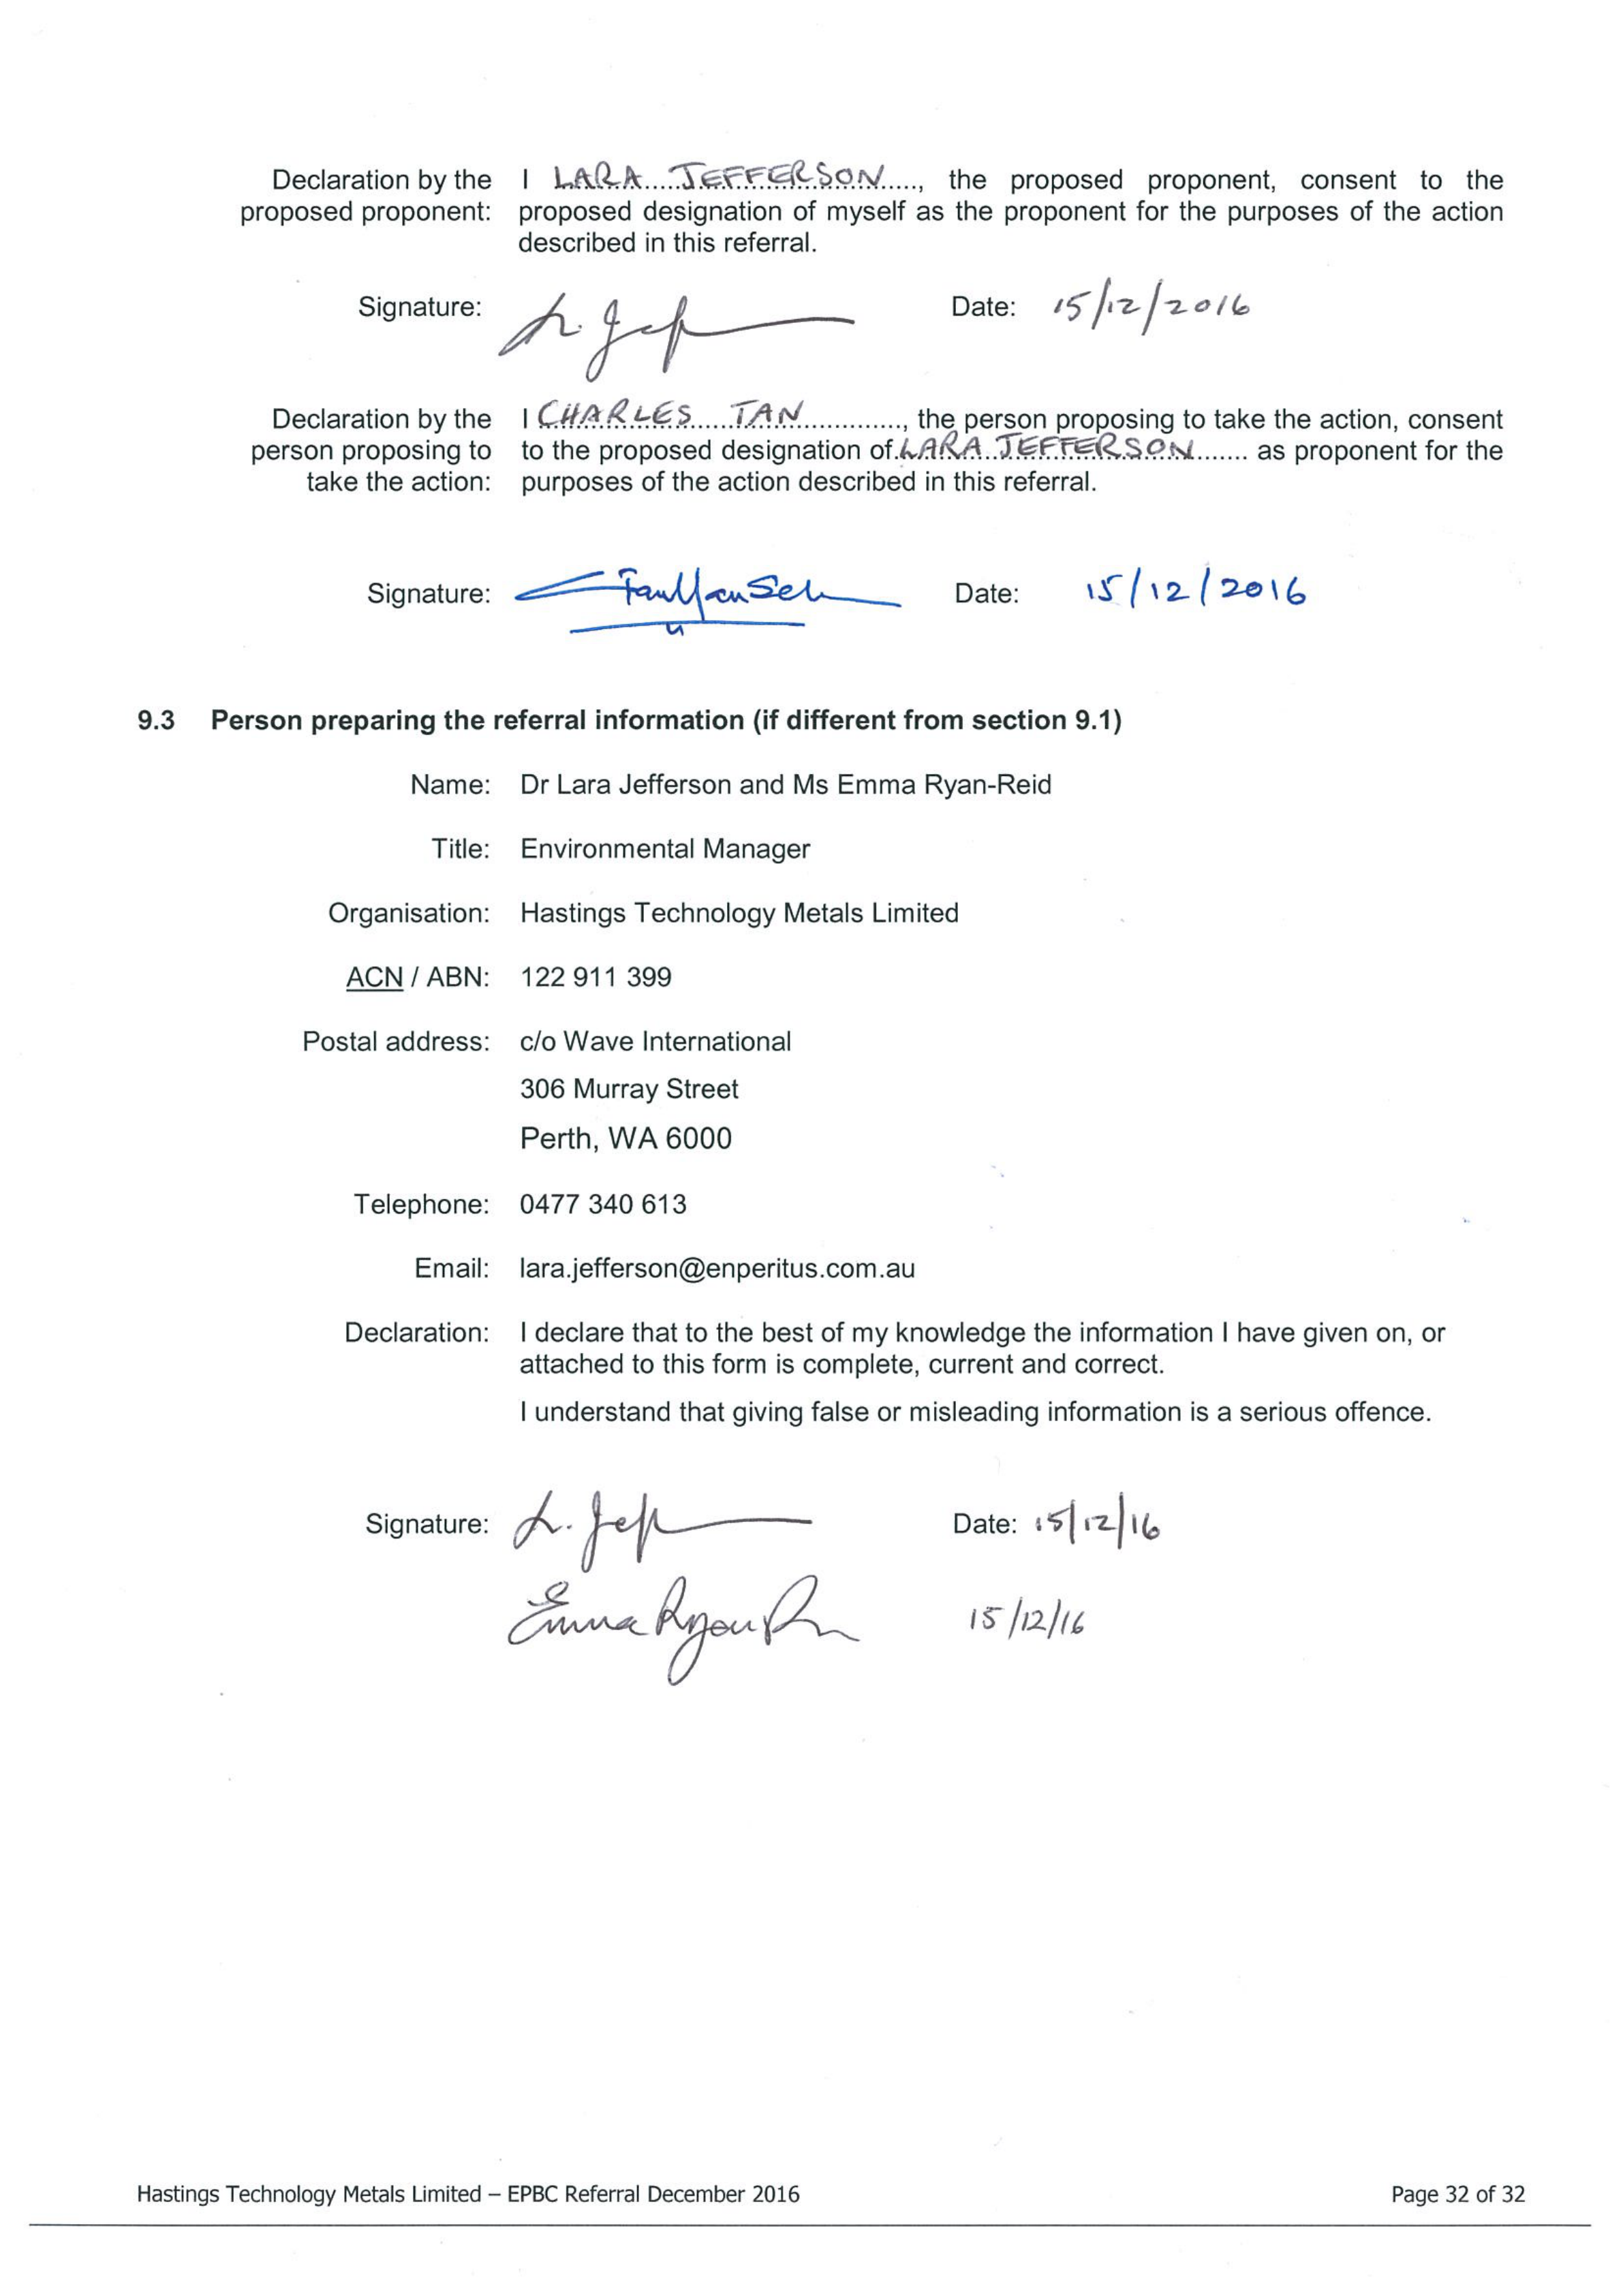 Declaration by the I LARA JEFFERSON, the proposed proponent, consent to the
proposed proponent: proposed designation of myself as the proponent for the purposes of the action
described in this referral.
Signature: L. Jef Date: 15/12/2016
Declaration by the I CHARLES TAN, the person proposing to take the action, consent
person proposing to to the proposed designation of LARA JEFFERSON as proponent for the
take the action: purposes of the action described in this referral.
Signature: Date: 15/12/2016
9.3 Person preparing the referral information (if different from section 9.1)
Name: Dr Lara Jefferson and Ms Emma Ryan-Reid
Title: Environmental Manager
Organisation: Hastings Technology Metals Limited
ACN / ABN: 122 911 399
Postal address: c/o Wave International
306 Murray Street
Perth, WA 6000
Telephone: 0477 340 613
Email: lara.jefferson@enperitus.com.au
Declaration: I declare that to the best of my knowledge the information I have given on, or
attached to this form is complete, current and correct.
I understand that giving false or misleading information is a serious offence.
Signature: L. Jef Date: 15/12/16
Emma Ryan 15/12/16
Hastings Technology Metals Limited – EPBC Referral December 2016 Page 32 of 32